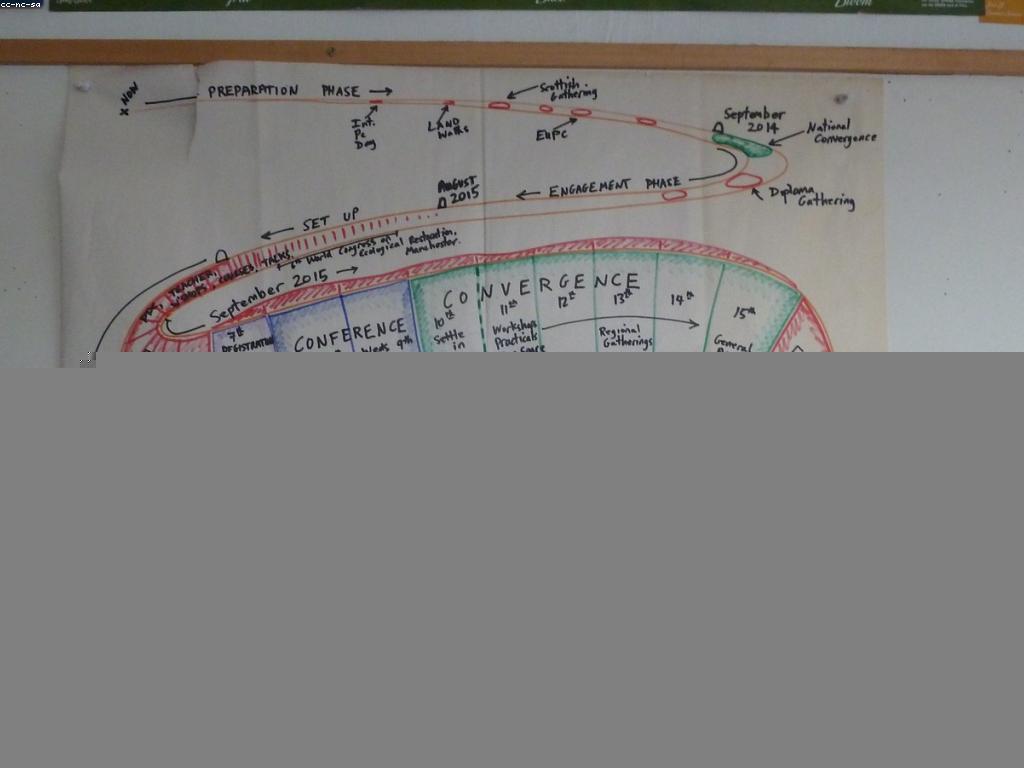 cc-nc-sa
Bloom
x NOW
PREPARATION PHASE →
Int.
Pc
Day
LAND
Walks
Scottish
Gathering
EuPc
September
2014
National
Convergence
Diploma
Gathering
← ENGAGEMENT PHASE
AUGUST
2015
← SET UP
TEACHER,
COURSES, TALKS,
World Congress on
Ecological Restoration,
Manchester.
September 2015 →
7th
REGISTRATION
CONFERENCE
Weds 9th
CONVERGENCE
10th
Settle
in
11th
Workshops
Practicals
Space
12th
13th
Regional
Gatherings
14th
15th
General